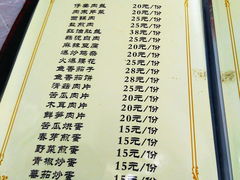 仔姜肉丝 20元/份
肉末芹菜 20元/份
回锅肉 25元/份
盐煎肉 25元/份
红油肚丝 38元/份
蒜泥白肉 25元/份
麻辣豆腐 20元/份
炝炒鸡杂 25元/份
火爆腰花 25元/份
鱼香茄子 28元/份
鱼香茄饼 28元/份
滑菇肉片 25元/份
苦瓜肉片 20元/份
木耳肉片 20元/份
鲜笋肉片 20元/份
苦瓜烘蛋 15元/份
春芽煎蛋 15元/份
野菜煎蛋 15元/份
青椒炒蛋 15元/份
蕃茄炒蛋 15元/份